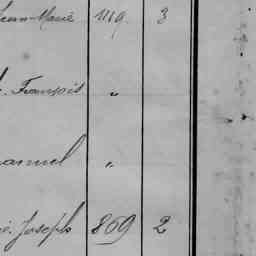 Jean-Marie 1119. 3
. François "
anuel "
. Joseph 869 2